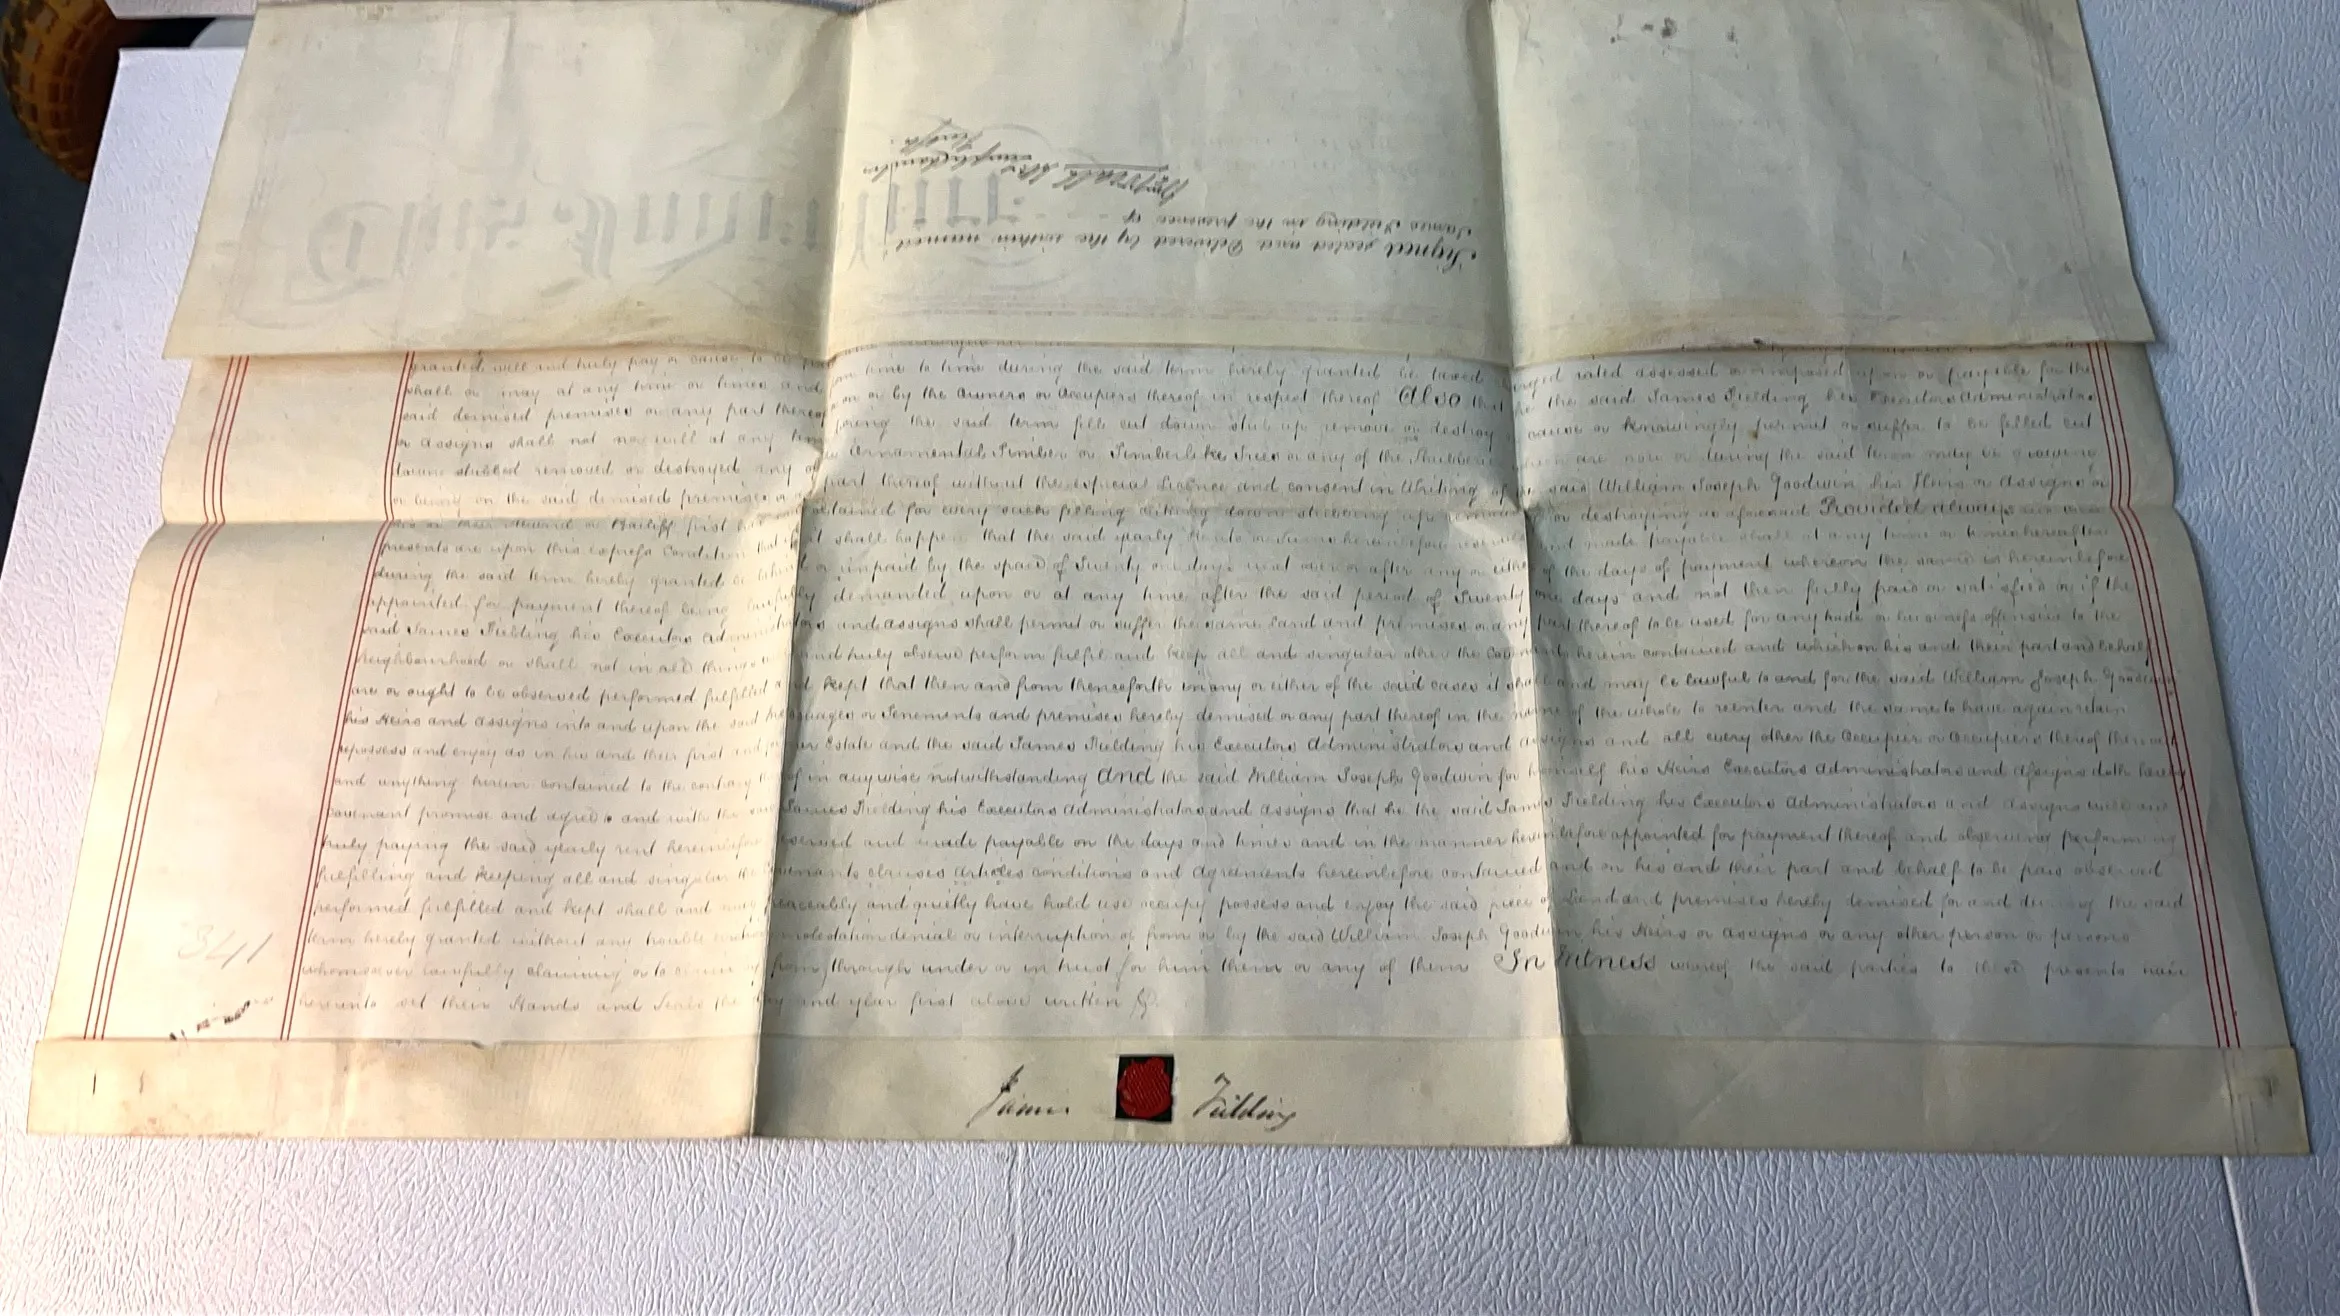 Signed sealed and Delivered by the within named
James Fielding in the presence of
granted well and truly pay or cause to be
shall or may at any time or times and from time to time during the said term hereby granted be taxed charged rated assessed or imposed upon or payable for the
said demised premises or any part thereof or on or by the Owners or Occupiers thereof in respect thereof Also that he the said James Fielding his Executors Administrators
or assigns shall not nor will at any time during the said term fell cut down stub up remove or destroy cause or knowingly permit or suffer to be felled cut
down stubbed removed or destroyed any of the Ornamental Timber or Timberlike Trees or any of the which are now or during the said term may be growing
or being on the said demised premises or any part thereof without the especial Licence and consent in Writing of the said William Joseph Goodwin his Heirs or Assigns or
his or their Steward or Bailiff first had and obtained for every such felling cutting down stubbing up removing or destroying as aforesaid Provided always
presents are upon this express Condition that if it shall happen that the said yearly Rents or Sums hereinbefore reserved and made payable shall at any time or times hereafter
during the said term hereby granted be behind or unpaid by the space of Twenty one days next over or after any or either of the days of payment whereon the same is hereinbefore
appointed for payment thereof being lawfully demanded upon or at any time after the said period of Twenty one days and not then fully paid or satisfied or if the
said James Fielding his Executors Administrators and assigns shall permit or suffer the same Land and premises or any part thereof to be used for any trade or business offensive to the
neighbourhood or shall not in all things well and truly observe perform fulfil and keep all and singular other the Covenants herein contained and which on his and their part and behalf
are or ought to be observed performed fulfilled and kept that then and from thenceforth in any or either of the said cases it shall and may be lawful to and for the said William Joseph Goodwin
his Heirs and assigns into and upon the said Messuages or Tenements and premises hereby demised or any part thereof in the name of the whole to reenter and the same to have again retain
repossess and enjoy as in his and their first and former Estate and the said James Fielding his Executors Administrators and assigns and all every other the Occupier or Occupiers thereof thereout
and anything herein contained to the contrary thereof in anywise notwithstanding And the said William Joseph Goodwin for himself his Heirs Executors Administrators and Assigns doth hereby
covenant promise and agree to and with the said James Fielding his Executors Administrators and assigns that he the said James Fielding his Executors Administrators and assigns well and
truly paying the said yearly rent hereinbefore reserved and made payable on the days and times and in the manner hereinbefore appointed for payment thereof and observing performing
fulfilling and keeping all and singular the Covenants clauses Articles conditions and Agreements hereinbefore contained and on his and their part and behalf to be paid observed
performed fulfilled and kept shall and may peaceably and quietly have hold use occupy possess and enjoy the said piece of Land and premises hereby demised for and during the said
term hereby granted without any trouble molestation denial or interruption of from or by the said William Joseph Goodwin his Heirs or assigns or any other person or persons
whomsoever lawfully claiming or to claim by from through under or in trust for him them or any of them In Witness whereof the said parties to these presents have
hereunto set their Hands and Seals the day and year first above written
341
James Fielding